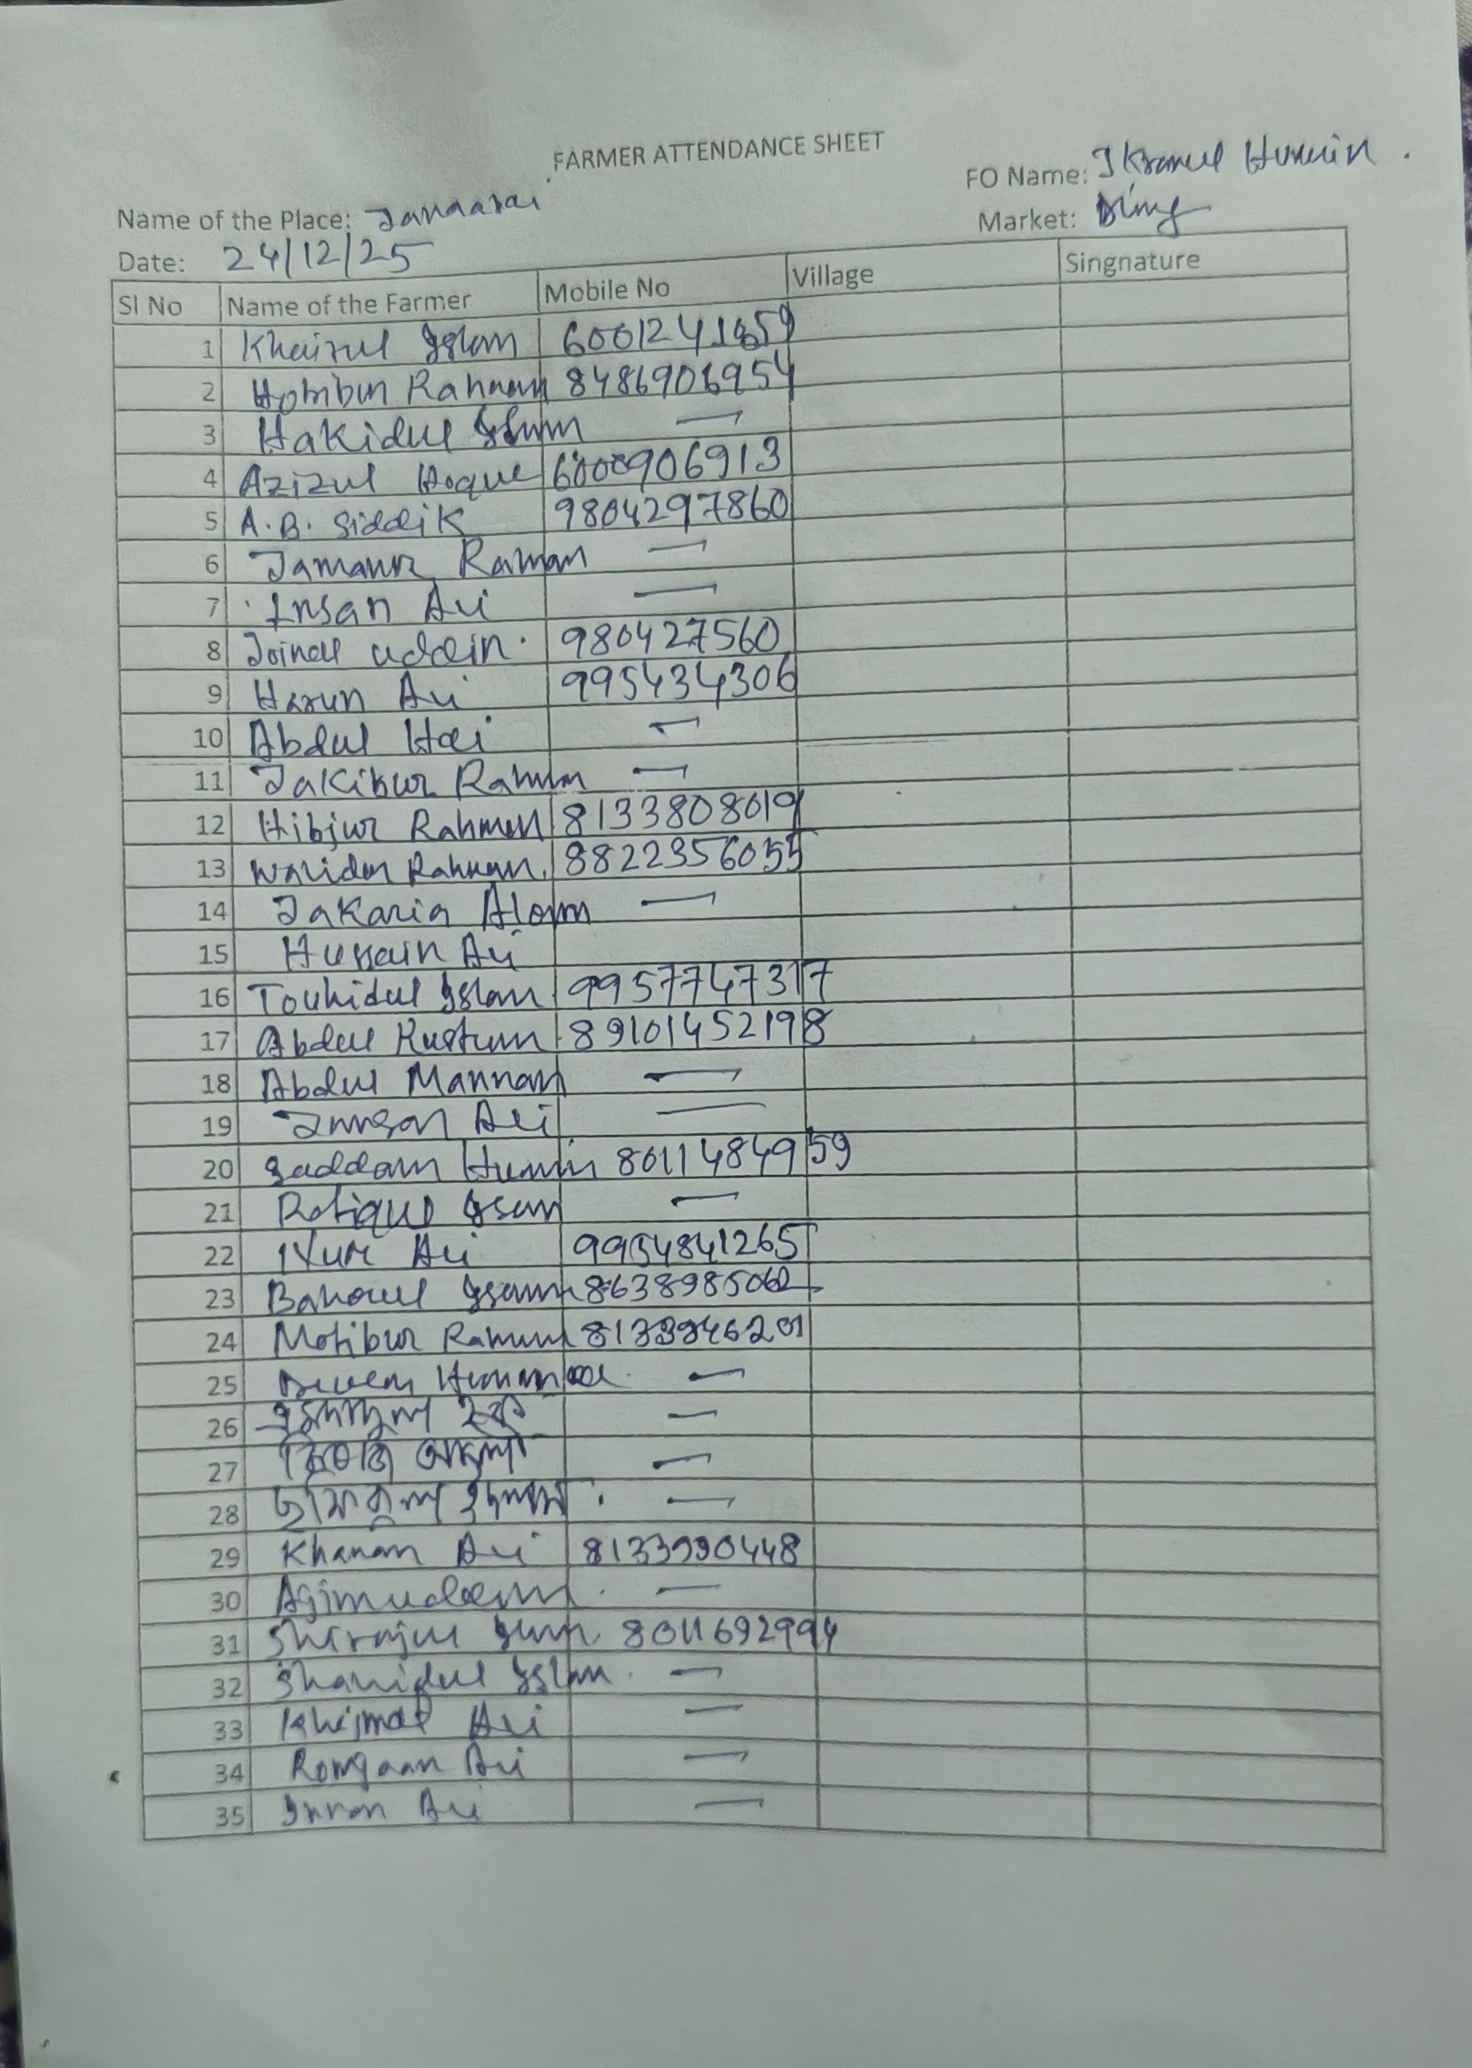 FARMER ATTENDANCE SHEET
FO Name: Ikramul Hussain.
Name of the Place: Janaarai
Market:
Date: 24/12/25
Sl No Name of the Farmer Mobile No Village Singnature
1 Khairul Islam 6001241859
2 Rahman 8486906954
3 Hakidul Islam —
4 Azizul Hoque 6000906913
5 A.B. Siddik 9804297860
6 Jamanur Raman —
7 Insan Ali —
8 Joinal uddin. 980427560
9 Harun Ali 995434306
10 Abdul Hai —
11 Jakibur Rahman —
12 Hibjur Rahman 8133808019
13 Walidur Rahman. 8822356055
14 Jakaria Alom —
15 Hussain Ali
16 Touhidul Islam 9957747317
17 Abdul Rustum 89101452198
18 Abdul Mannan —
19 Ali —
20 Saddam Hussain 8011484959
21 Rofiqul Islam —
22 Nur Ali 9954841265
23 Baharul Islam 8638985062
24 Motibur Rahman 8133946201
25 —
26 হক —
27 আলী —
28 ইছলাম . —
29 Khanan Ali 8133990448
30 Ajimuddin . —
31 Shirajul Islam. 8011692994
32 Shahidul Islam. —
33 Khijmat Ali —
34 Romjaan Ali —
35 Imran Ali —